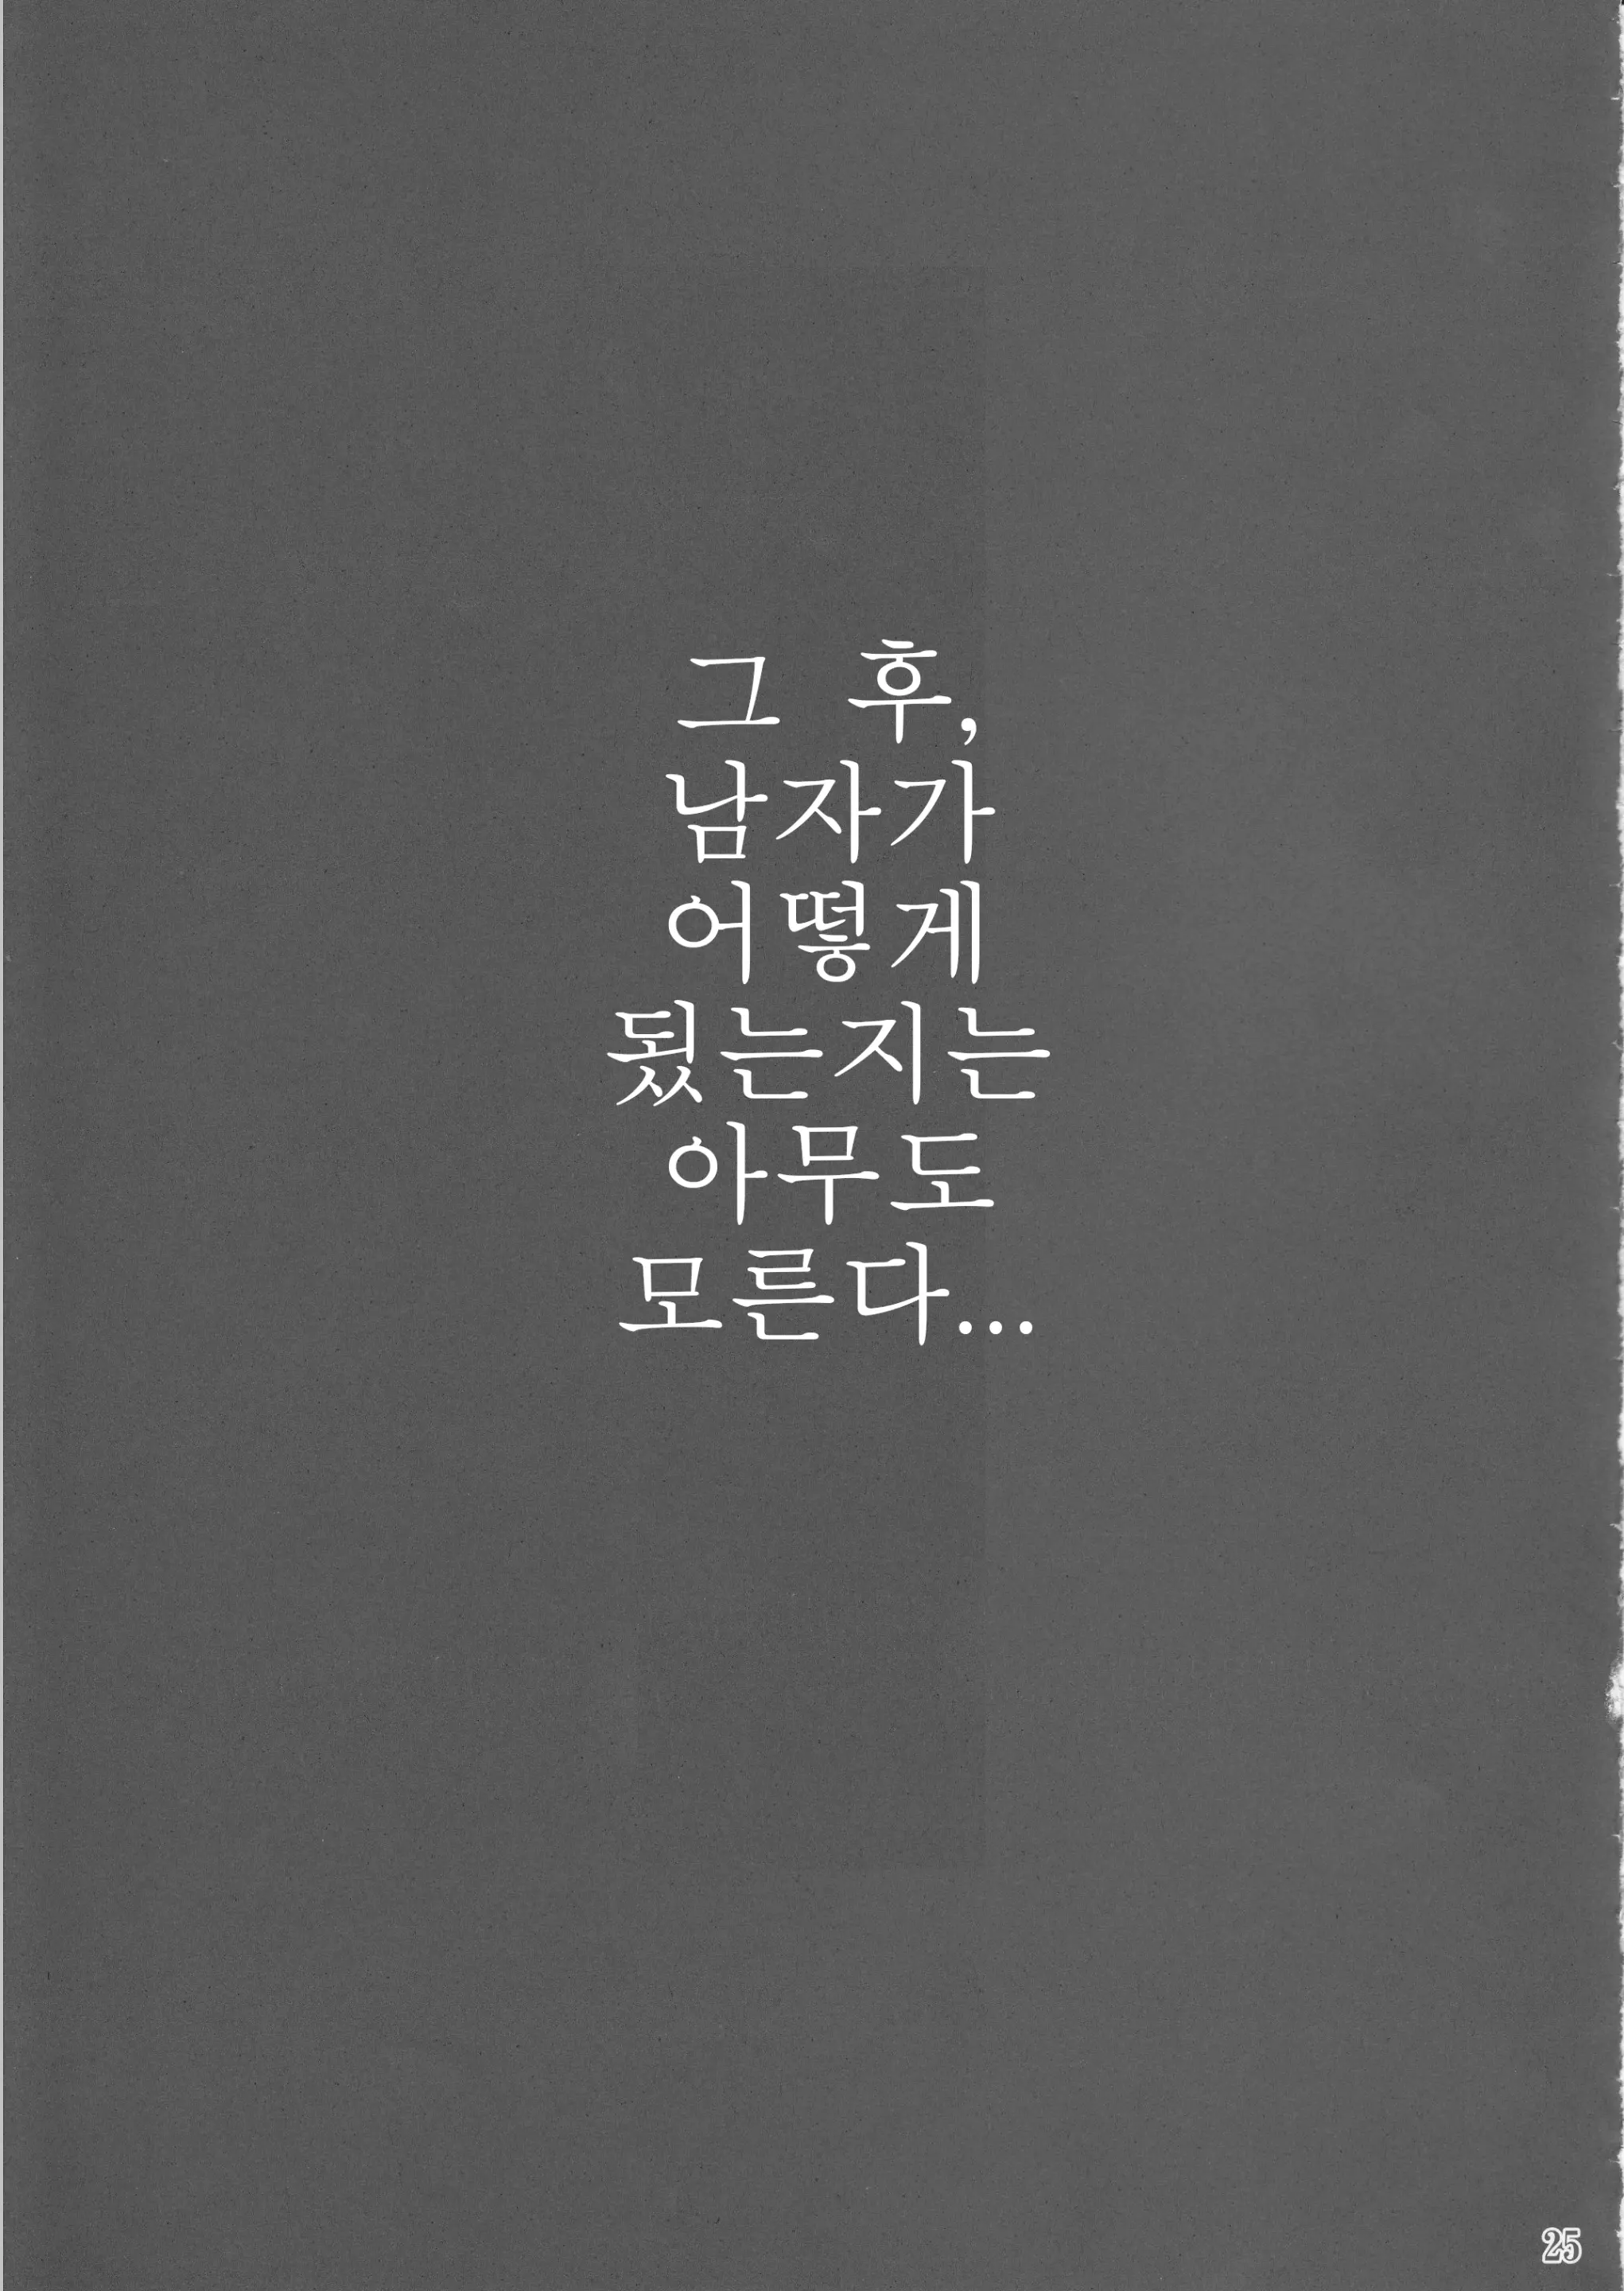 그 후,
남자가
어떻게
됬는지는
아무도
모른다...
25